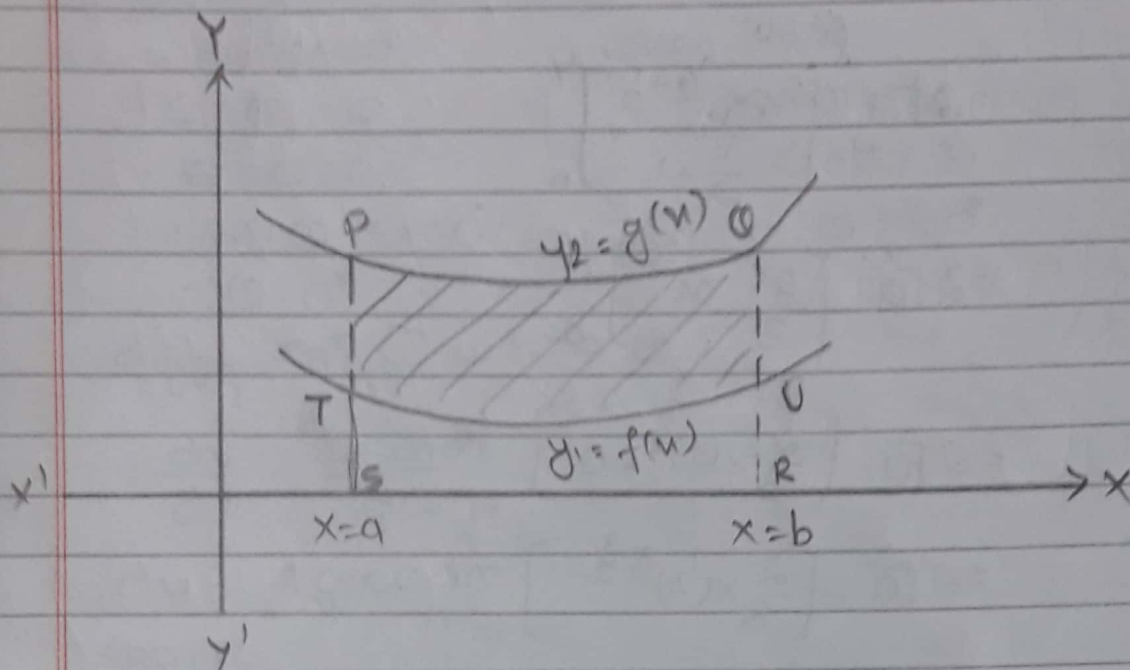 Y
P
y₂ = g(x)
Q
T
U
y₁ = f(x)
S
R
X'
X
x=a
x=b
Y'